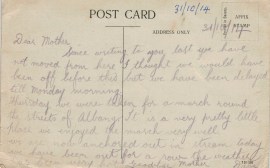 31/10/14
POST CARD
ADDRESS ONLY
Dear Mother,
Since writing to you last you have
not moved from here I thought we would have
been off before this but we have been delayed
till Monday morning.
we were taken for a march round
the streets of Albany. It is a very pretty little
place we enjoyed the march very well
we are now anchored out in stream today
have been out for a row the weather
Goodbye Mother